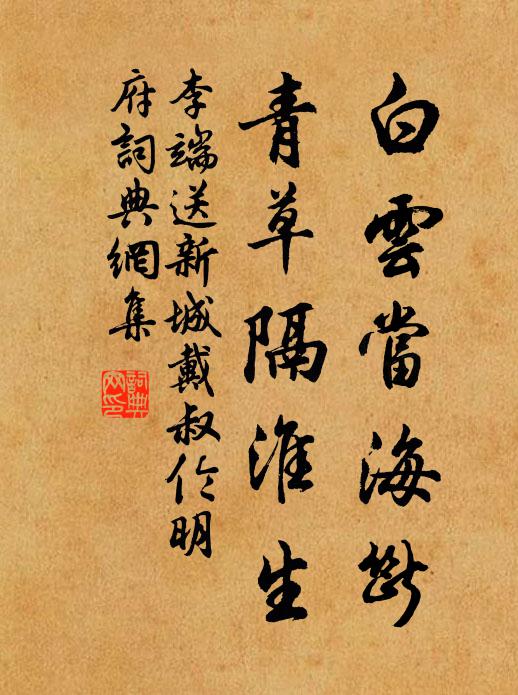 白雲當海斷
青草隔淮生
李端送新城戴叔伦明
府詞典網集
詞典
网印